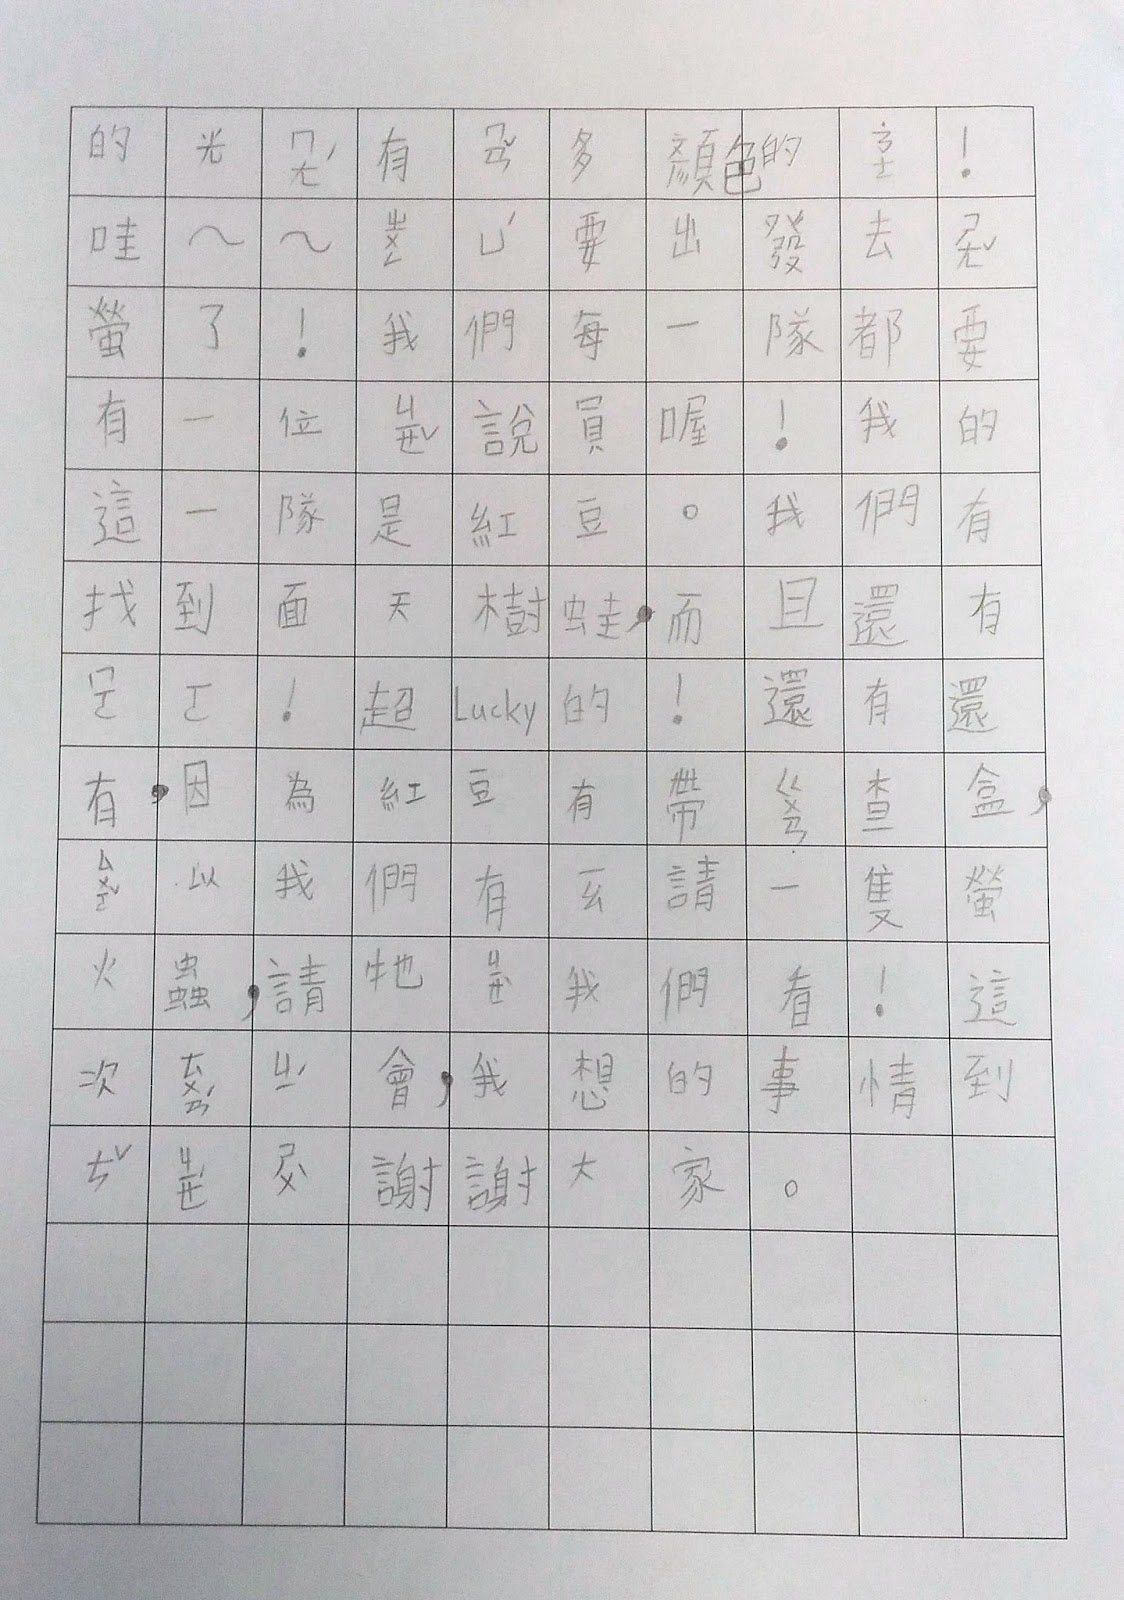 的光ㄇㄤˊ有ㄏㄣˇ多顏色的！
哇～～ㄓㄨㄥㄩˊ要出發去ㄕㄤˇ
螢了！我們每一隊都要
有一位ㄐㄧㄝˇ說員喔！我的
這一隊是紅豆。我們有
找到面天樹蛙，而且還有
！超Lucky的！還有還
有，因為紅豆有帶ㄍㄨㄢ查盒，
ㄙㄨㄛˇ以我們有ㄧㄠ請一隻螢
火蟲，請牠ㄐㄧㄝ我們看！這
次ㄊㄨㄢˊㄐㄧˊ會，我想的事情到
ㄘˇㄐㄧㄝˊㄕㄨˋ謝謝大家。